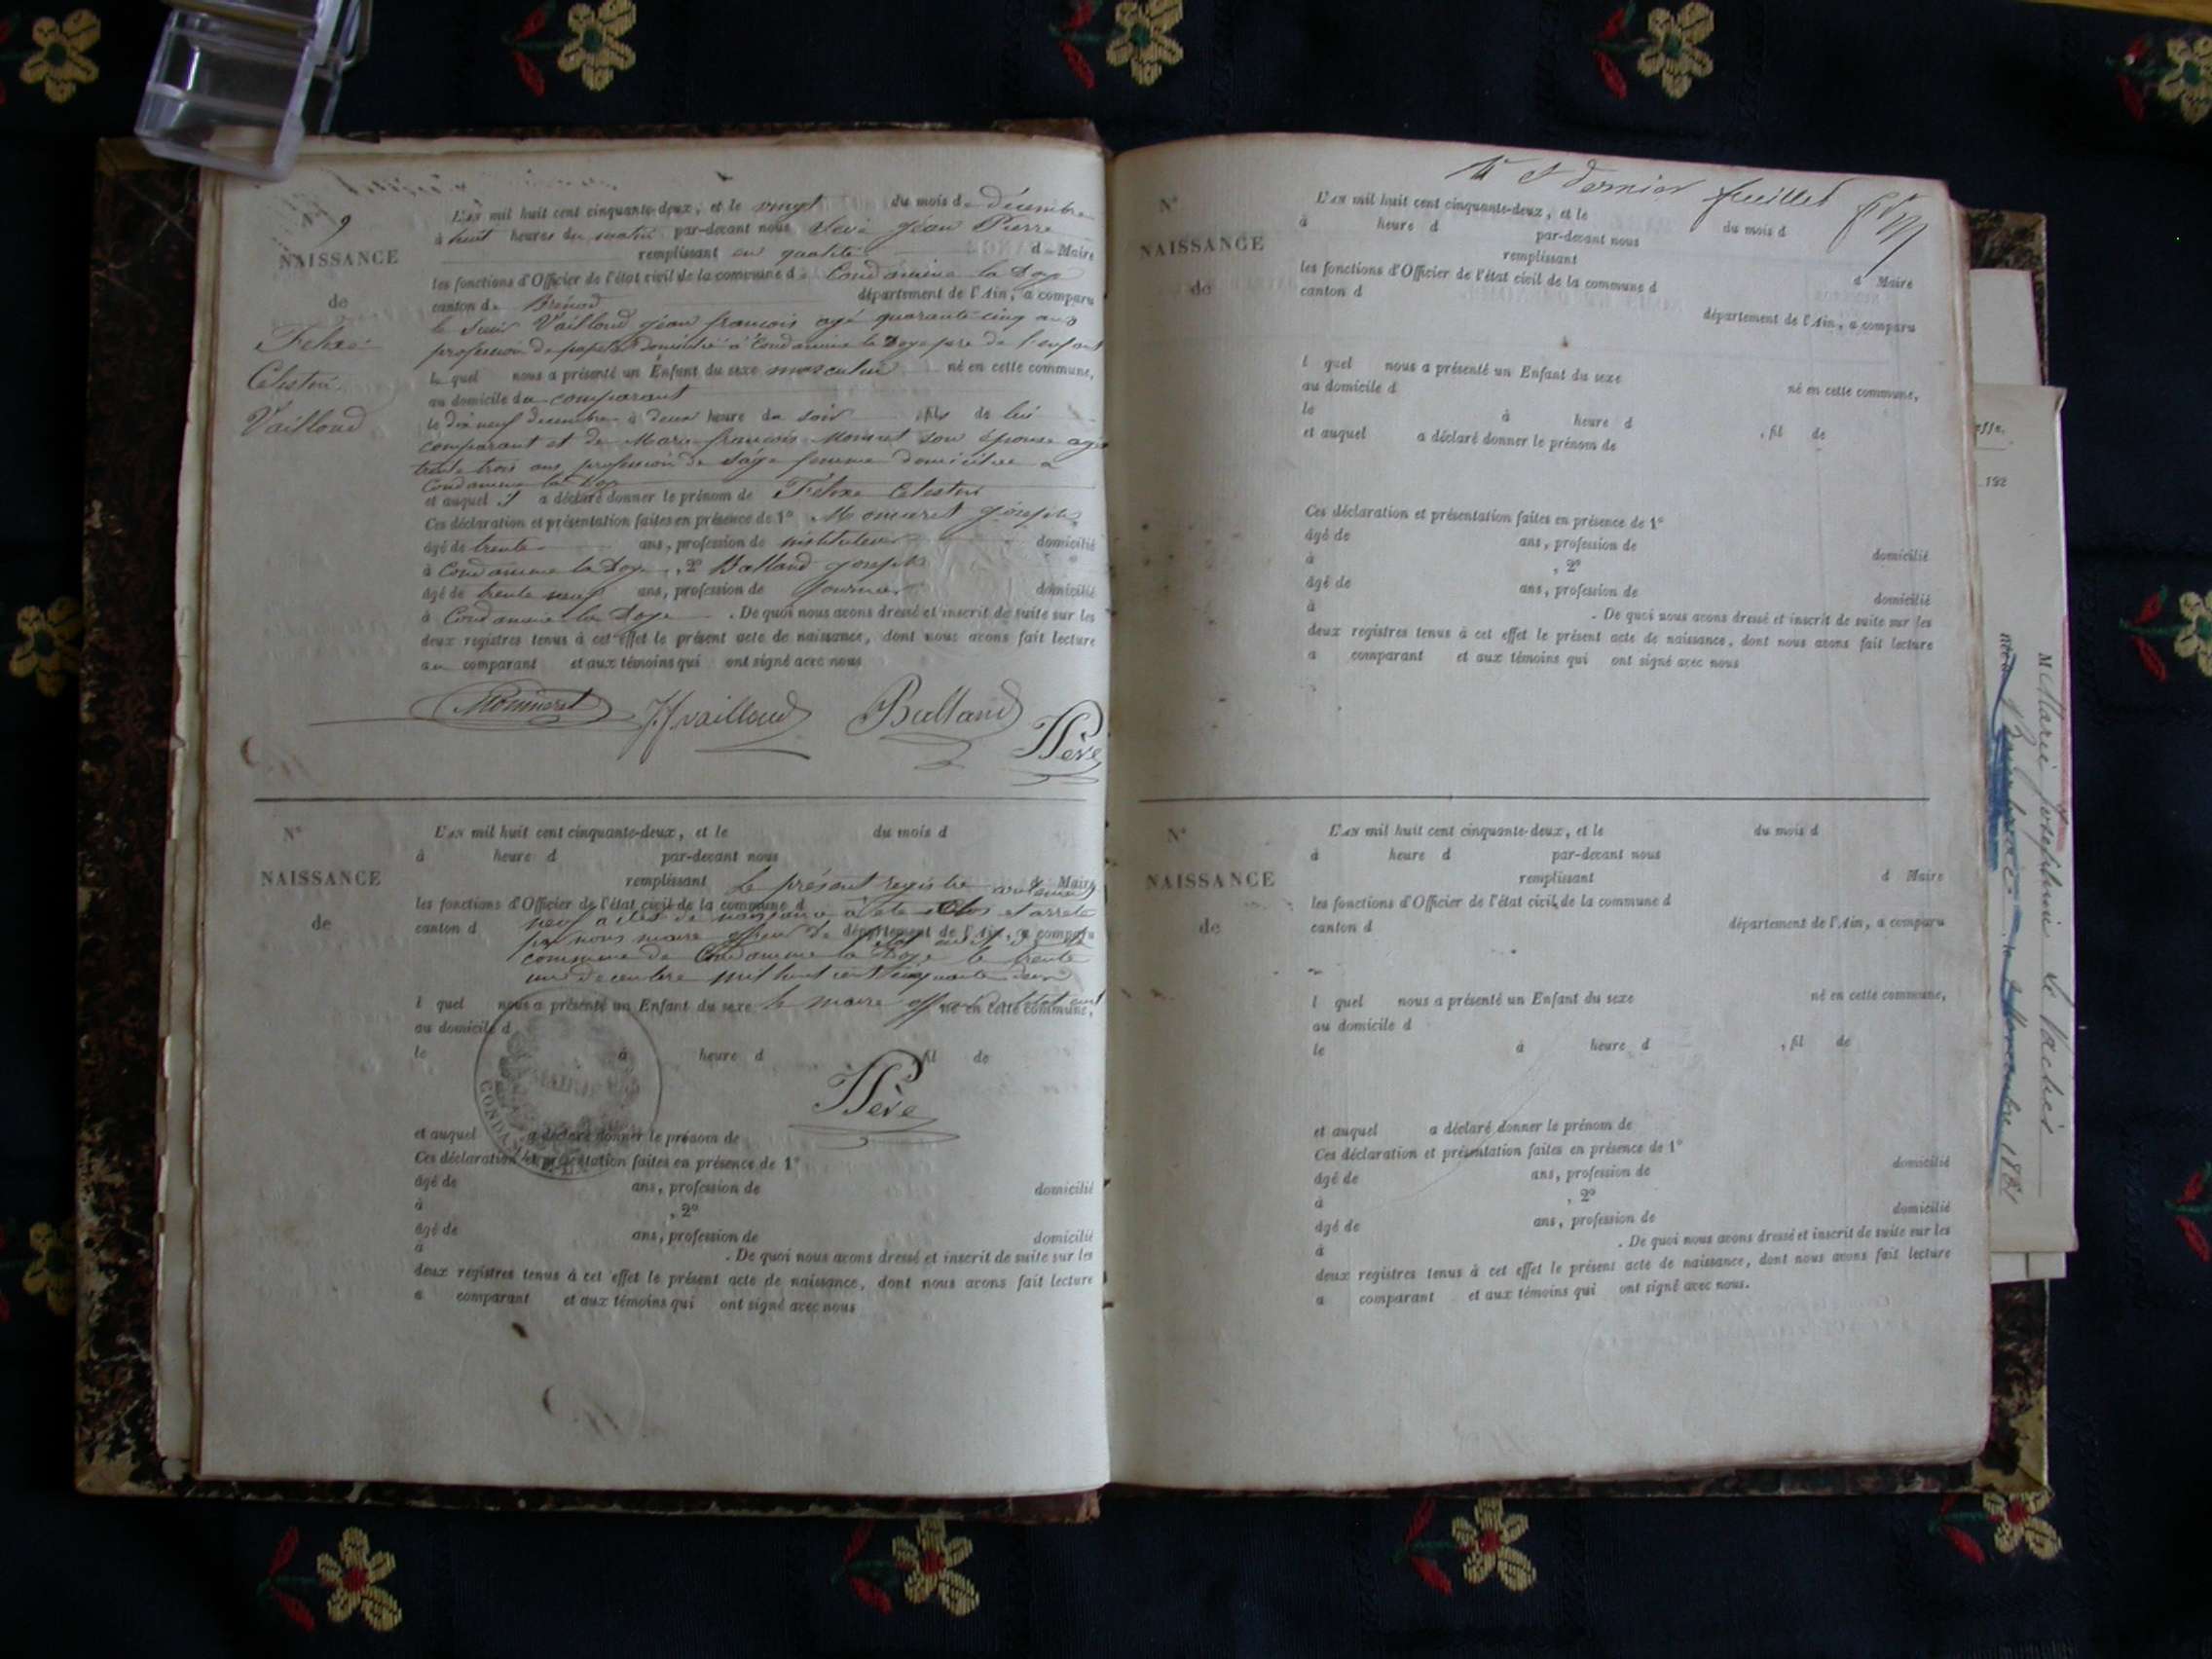 9
NAISSANCE
de
Felixe
Celestin
Vailloud
L'AN mil huit cent cinquante-deux, et le vingt du mois de décembre
à huit heures du matin par-devant nous Sève Jean Pierre
remplissant en qualité de Maire
les fonctions d'Officier de l'état civil de la commune de Condamine la Doye
canton de Brénod département de l'Ain, a comparu
le sieur Vailloud jean francois agé quarante cinq ans
profession de domicilié à Condamine la Doye père de l'enfant
le quel nous a présenté un Enfant du sexe masculin né en cette commune,
au domicile du comparant
le dix neuf decembre à deux heure du soir fils de lui
comparant et de Marie françoise Monnret son épouse agée
trente trois ans profession de sage femme domiciliee a
Condamine la Doye
et auquel il a déclaré donner le prénom de Felixe Celestin
Ces déclaration et présentation faites en présence de 1° Joseph
âgé de trente ans, profession de instituteur domicilié
à Condamine la Doye, 2° Balland Joseph
âgé de trente neuf ans, profession de domicilié
à Condamine la Doye . De quoi nous avons dressé et inscrit de suite sur les
deux registres tenus à cet effet le présent acte de naissance, dont nous avons fait lecture
au comparant et aux témoins qui ont signé avec nous
Jf vailloud Balland
PSève
N°
NAISSANCE
de
L'AN mil huit cent cinquante-deux, et le du mois d
à heure d par-devant nous
remplissant d Maire
Le présent registre contenant
les fonctions d'Officier de l'état civil de la commune d
neuf actes de naissance a été clos et arreté
canton d département de l'Ain, a comparu
par nous maire officier de l'état civil de la
commune de Condamine la Doye le trente
un decembre mil huit cent cinquante deux
l quel nous a présenté un Enfant du sexe né en cette commune,
le maire officier de l'état civil
au domicile d
le à heure d , fil de
PSève
CONDA
et auquel a déclaré donner le prénom de
Ces déclaration et présentation faites en présence de 1°
âgé de ans, profession de domicilié
à , 2°
âgé de ans, profession de domicilié
à . De quoi nous avons dressé et inscrit de suite sur les
deux registres tenus à cet effet le présent acte de naissance, dont nous avons fait lecture
a comparant et aux témoins qui ont signé avec nous
et dernier feuillet
N°
NAISSANCE
de
L'AN mil huit cent cinquante-deux, et le du mois d
à heure d par-devant nous
remplissant d Maire
les fonctions d'Officier de l'état civil de la commune d
canton d département de l'Ain, a comparu
l quel nous a présenté un Enfant du sexe né en cette commune,
au domicile d
le à heure d , fil de
et auquel a déclaré donner le prénom de
Ces déclaration et présentation faites en présence de 1°
âgé de ans, profession de domicilié
à , 2°
âgé de ans, profession de domicilié
à . De quoi nous avons dressé et inscrit de suite sur les
deux registres tenus à cet effet le présent acte de naissance, dont nous avons fait lecture
a comparant et aux témoins qui ont signé avec nous
N°
NAISSANCE
de
L'AN mil huit cent cinquante-deux, et le du mois d
à heure d par-devant nous
remplissant d Maire
les fonctions d'Officier de l'état civil de la commune d
canton d département de l'Ain, a comparu
l quel nous a présenté un Enfant du sexe né en cette commune,
au domicile d
le à heure d , fil de
et auquel a déclaré donner le prénom de
Ces déclaration et présentation faites en présence de 1°
âgé de ans, profession de domicilié
à , 2°
âgé de ans, profession de domicilié
à . De quoi nous avons dressé et inscrit de suite sur les
deux registres tenus à cet effet le présent acte de naissance, dont nous avons fait lecture
a comparant et aux témoins qui ont signé avec nous.
192
M Marie Josephine
novembre 1881